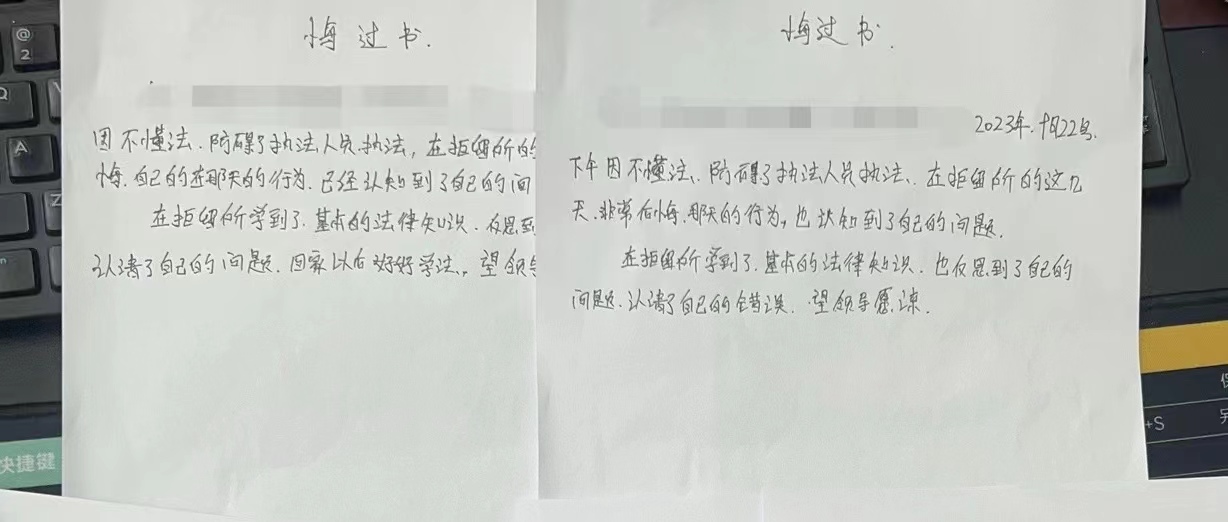 悔过书.
因不懂法.防碍了执法人员执法,在拒留所的
悔.自己的在那天的行为.已经认知到了自己的问
在拒留所学到了.基本的法律知识.反思到
认清了自己的问题.回家以后好好学法,.望领导
悔过书.
2023年.十月22号.
下午因不懂法、防碍了执法人员执法、在拒留所的这几
天.非常后悔.那天的行为,也认知到了自己的问题.
在拒留所学到了.基本的法律知识.也反思到了自己的
问题.认清了自己的错误.望领导愿谅.
@
2
Q
A
Z
快捷键
+S